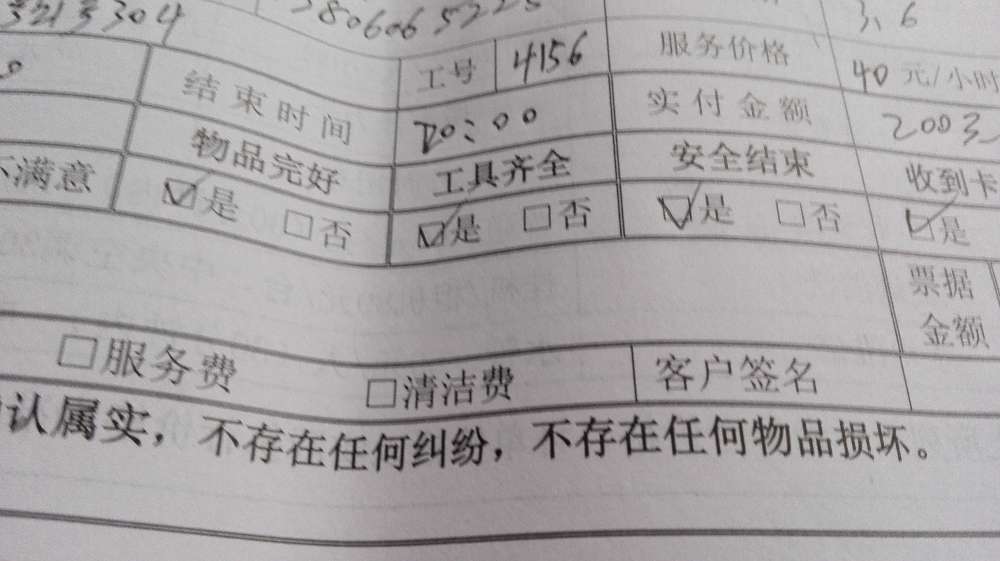 3213304 3.6
工号 4156 服务价格 40元/小时
结束时间 20:00 实付金额 2003
不满意 物品完好 工具齐全 安全结束 收到卡
是 否 是 否 是 否 是
票据金额
服务费 清洁费 客户签名
认属实，不存在任何纠纷，不存在任何物品损坏。